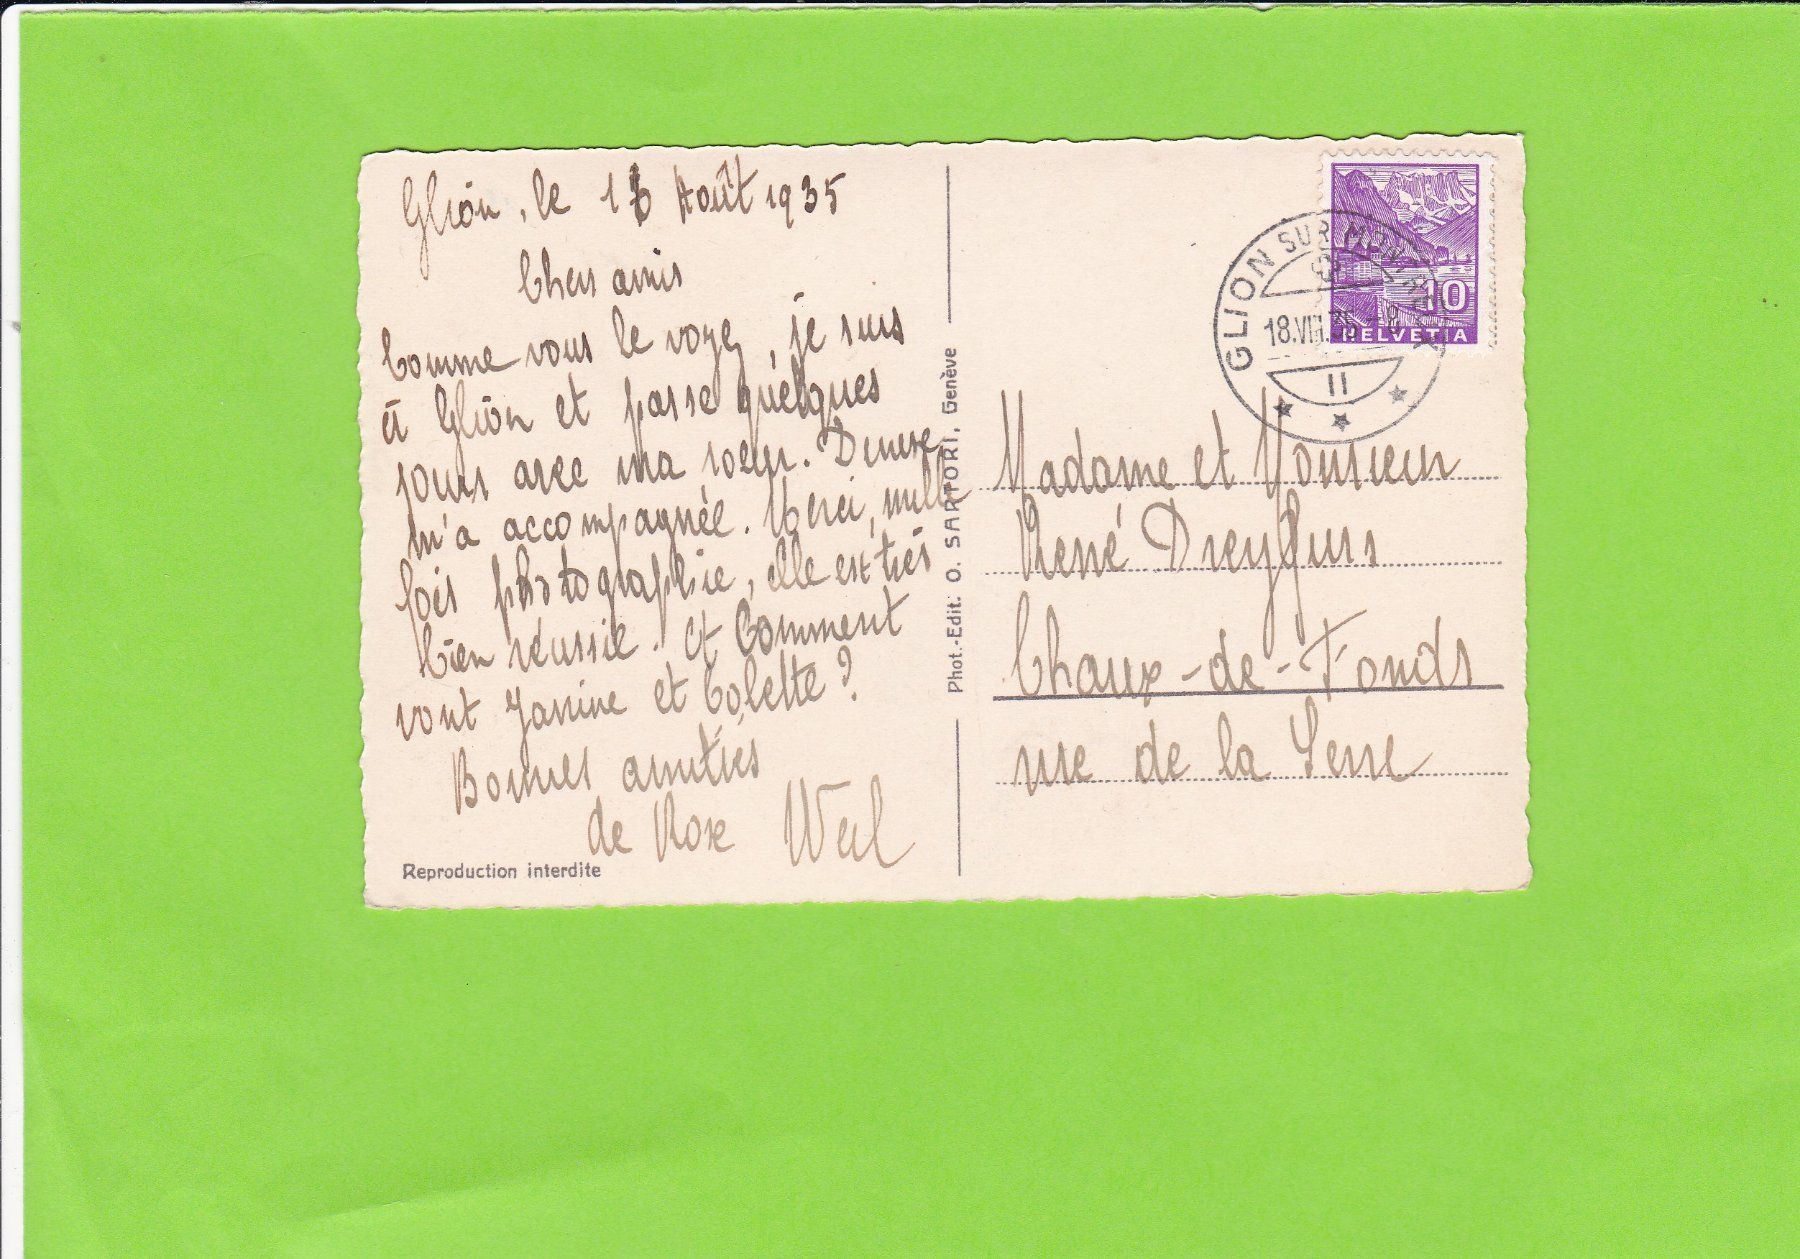 Glion, le 16 Août 1935
Chers amis
Comme vous le voyez, je suis
à Glion et passe quelques
jours avec ma soeur. Denise
m'a accompagnée. Merci, mille
fois photographie, elle est très
bien réussie. et Comment
vont Janine et Colette?
Bonnes amitiés
de Rose Weil
Reproduction interdite
Phot.-Edit. O. SARTORI, Genève
GLION SUR MONTREUX
18.VIII.35
II
10
HELVETIA
Madame et Monsieur
René Dreyfuss
Chaux-de-Fonds
rue de la Serre